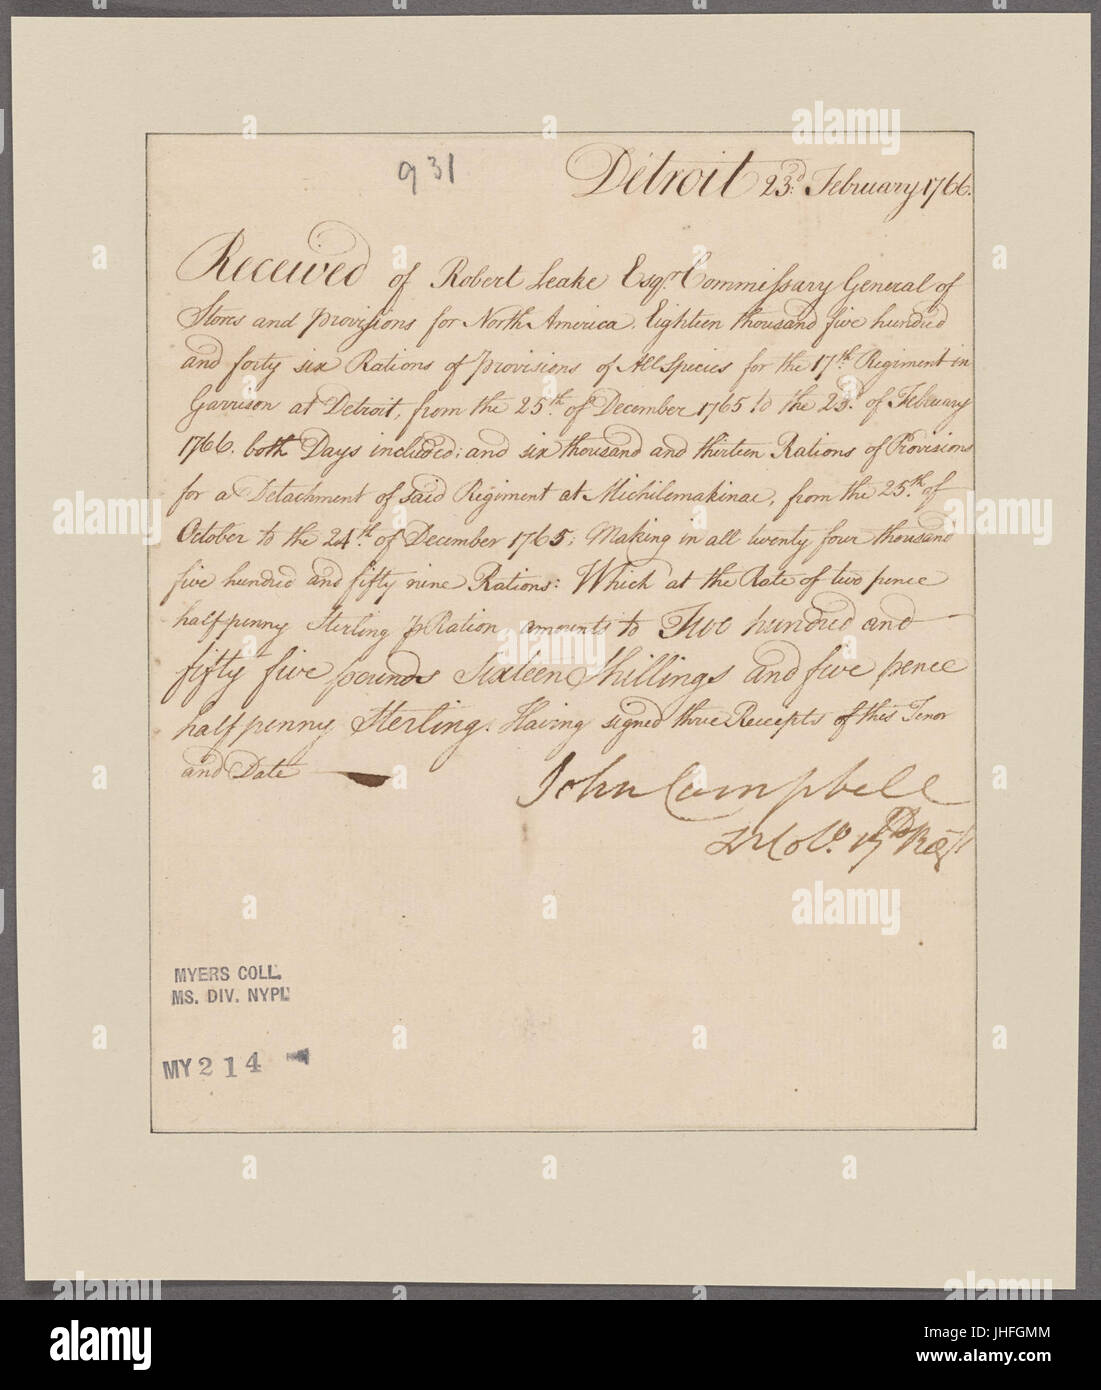 931
Detroit 23.d February 1766.
Received of Robert Leake Esqr. Commissary General of
Stores and provisions for North America. Eighteen thousand five hundred
and forty six Rations of provisions of All Species for the 17th. Regiment in
Garrison at Detroit, from the 25th. of December 1765 to the 23d. of February
1766. both Days included; and six thousand and thirteen Rations of Provisions
for a Detachment of said Regiment at Michilemakinac, from the 25th. of
October to the 24th. of December 1765; Making in all twenty four thousand
five hundred and fifty nine Rations: Which at the Rate of two pence
halfpenny Sterling ⅌ Ration amounts to Two hundred and
fifty five pounds Sixteen Shillings and five pence
halfpenny Sterling. Having signed three Receipts of this Tenor
and Date
John Campbell
17th Regt
MYERS COLL.
MS. DIV. NYPL
MY 214
alamy
Image ID: JHFGMM
www.alamy.com